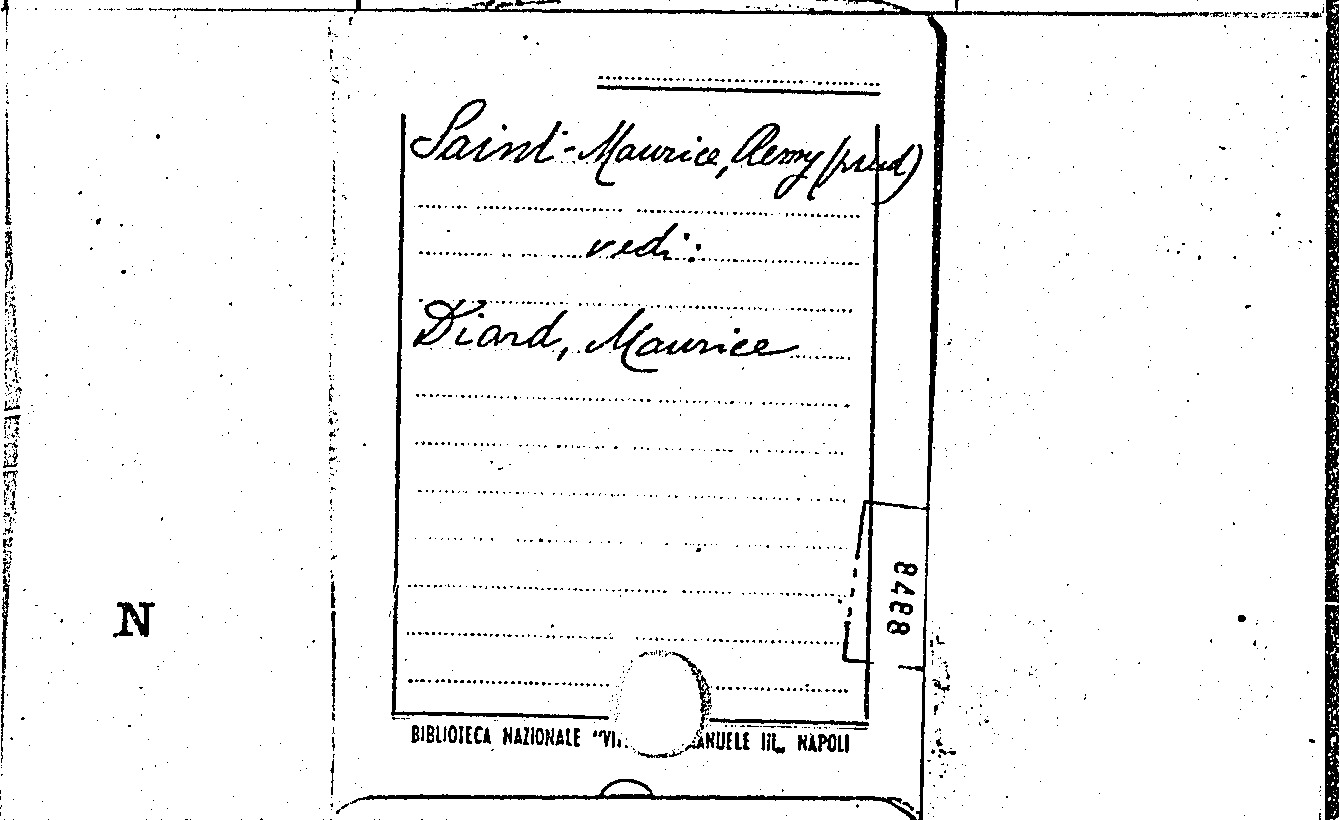 Saint-Maurice, Remy (pseud)
vedi:
Diard, Maurice
8488
N
BIBLIOTECA NAZIONALE "VI ANUELE III„ NAPOLI